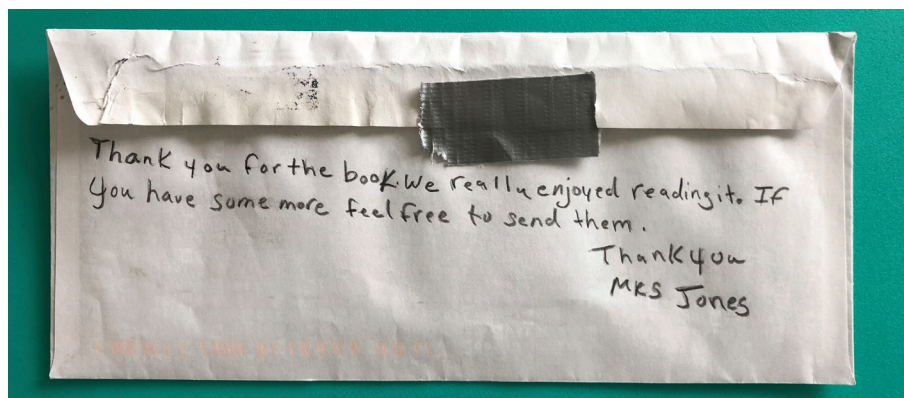 Thank you for the book. We really enjoyed reading it. If
you have some more feel free to send them.
Thank you
MRS Jones